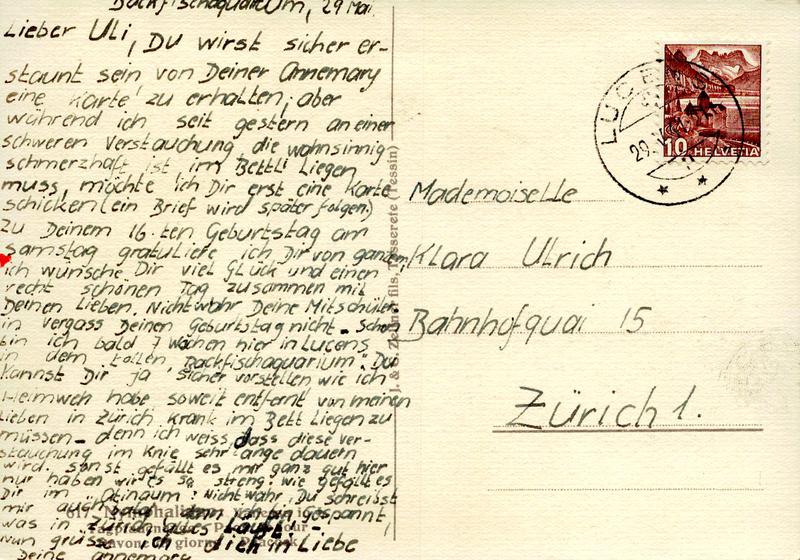 Backfischaquarium, 29 Mai.
Lieber Uli, Du wirst sicher er-
staunt sein von Deiner Annemary
eine Karte zu erhalten; aber
während ich seit gestern an einer
schweren Verstauchung, die wahnsinnig
schmerzhaft ist im Bettli liegen
muss, möchte ich Dir erst eine Karte
schicken (ein Brief wird später folgen.)
Zu Deinem 16.ten Geburtstag am
Samstag gratuliere ich Dir von ganzem,
ich wünsche Dir viel Glück und einen
recht schönen Tag zusammen mit
Deinen Lieben. Nichtwahr Deine Mitschüler-
in vergass Deinen Geburtstag nicht - Schon
bin ich bald 7 Wochen hier in Lucens
in dem tollen "Backfischaquarium". Du
kannst Dir ja sicher vorstellen wie ich
Heimweh habe soweit entfernt von meinen
Lieben in Zürich krank im Bett liegen zu
müssen - denn ich weiss, dass diese ver-
stauchung im Knie sehr lange dauern
wird. Sonst gefällt es mir ganz gut hier
nur haben wir es so streng. Wie gefällt es
Dir im Nichtwahr, Du schreibst
mir auch bald denn gespannt,
was in Zürich alles läuft. -
nun grüsse ich dich in Liebe
Deine Annemary
J. & S. fils, Tesserete (Tessin)
LUCENS
29.V
10 HELVETIA
Mademoiselle
Klara Ulrich
Bahnhofquai 15
Zürich 1.
617
Pavone di giorno - Peacock